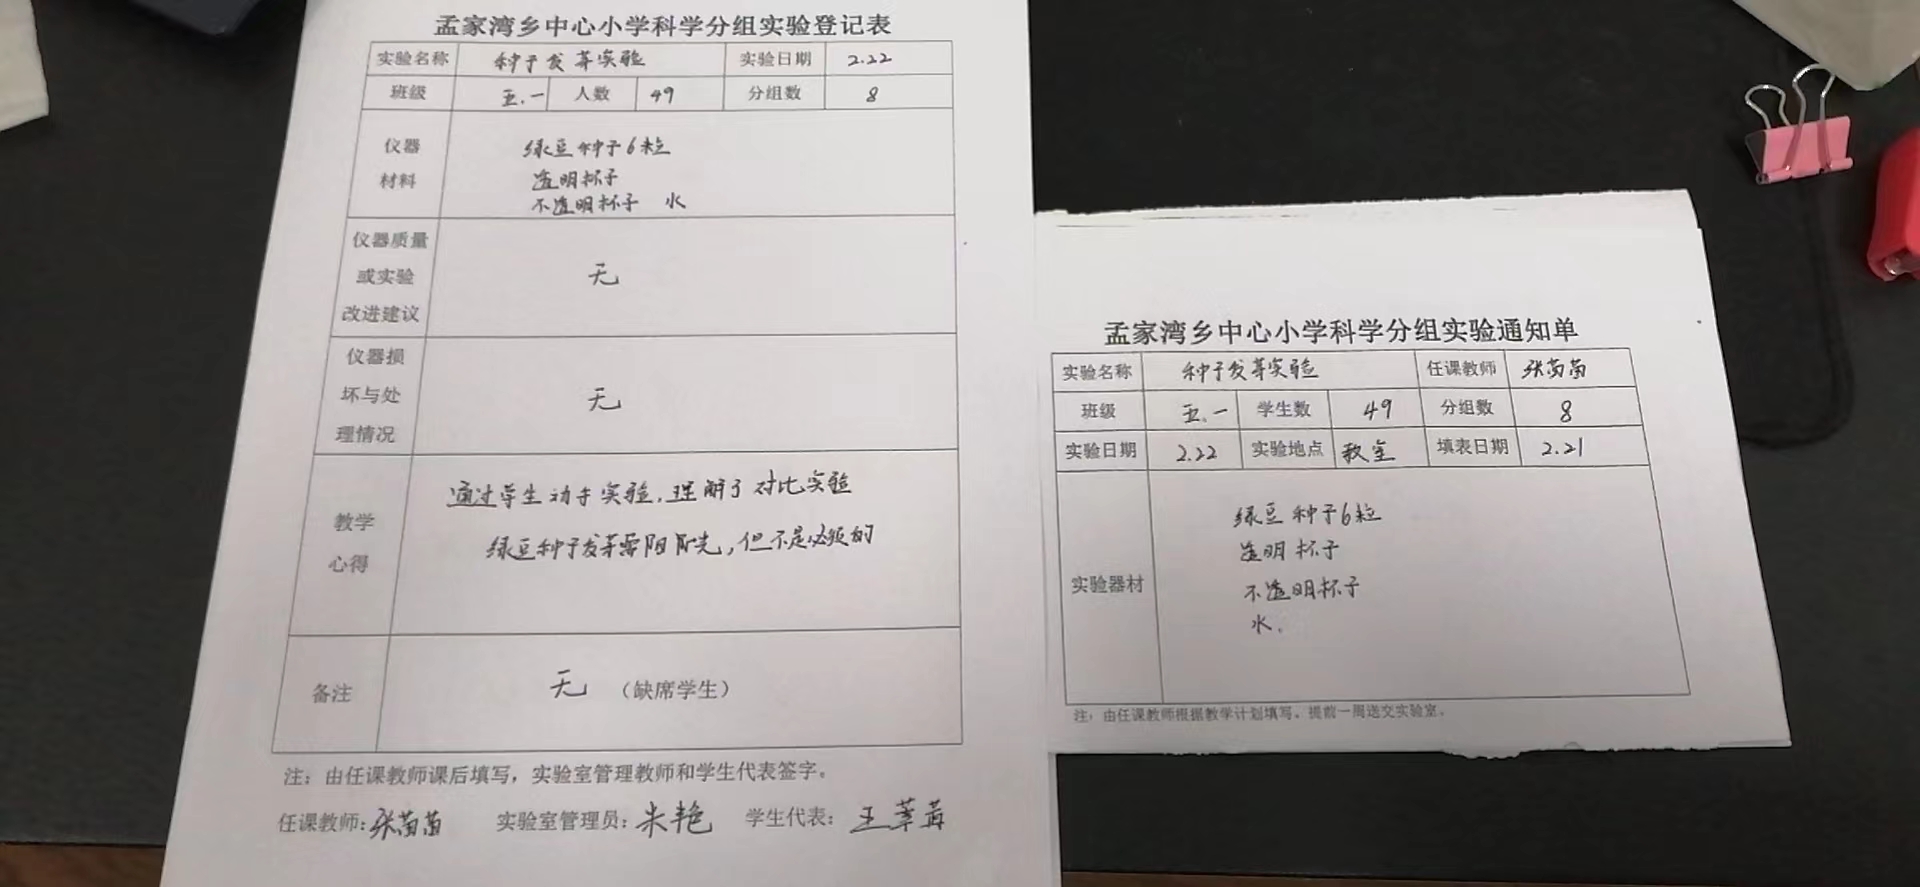 孟家湾乡中心小学科学分组实验登记表
实验名称 种子发芽实验 实验日期 2.22
班级 五.一 人数 49 分组数 8
仪器
材料
绿豆种子6粒
透明杯子
不透明杯子 水
仪器质量
或实验
改进建议
无
仪器损
坏与处
理情况
无
教学
心得
通过学生动手实验,理解了对比实验
绿豆种子发芽需阳光,但不是必须的
备注 无 (缺席学生)
注:由任课教师课后填写,实验室管理教师和学生代表签字。
任课教师:张苗苗 实验室管理员:朱艳 学生代表:王
孟家湾乡中心小学科学分组实验通知单
实验名称 种子发芽实验 任课教师 张苗苗
班级 五.一 学生数 49 分组数 8
实验日期 2.22 实验地点 教室 填表日期 2.21
实验器材
绿豆种子6粒
透明杯子
不透明杯子
水.
注:由任课教师根据教学计划填写,提前一周送交实验室。